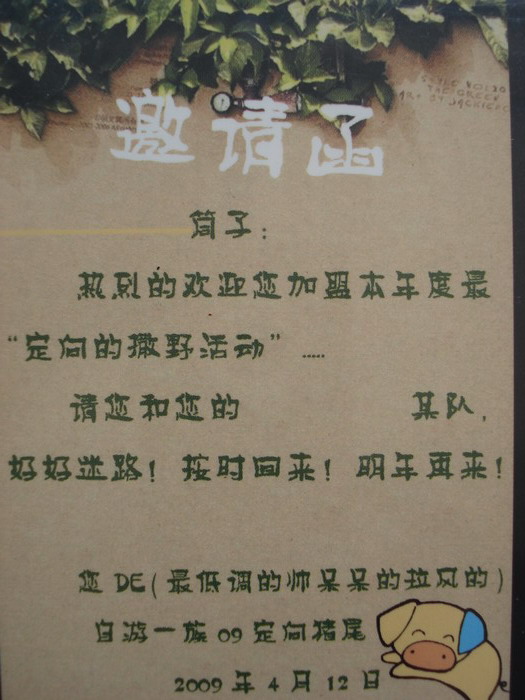 邀请函
简子：
热烈的欢迎您加盟本年度最
“定向的撒野活动”……
请您和您的 某队，
好好迷路！按时回来！明年再来！
您DE（最低调的帅呆呆的拉风的）
自游一族09定向猪尾
2009年4月12日